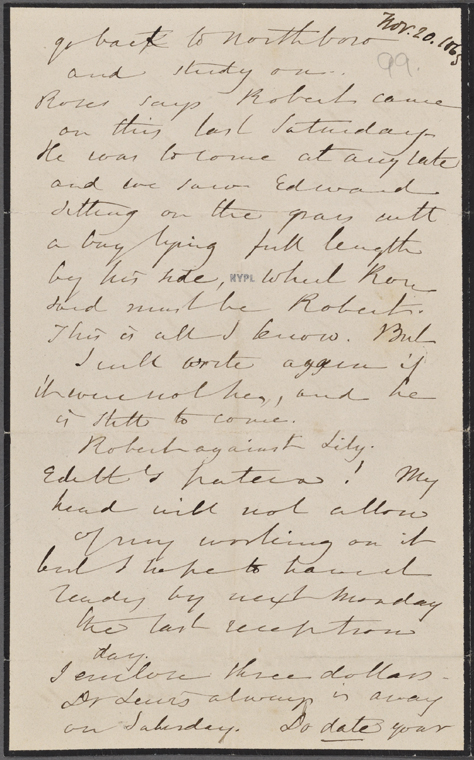 Nov. 20. 1865
99.
go back to Northboro
and study on..
Rose says Robert came
on this last Saturday.
He was to come at any rate
and we saw Edward
sitting on the grass with
a boy lying full length
by his side, NYPL which Rose
said must be Robert.
This is all I know. But
I will write again if
it were not he, and he
is still to come.
Robert against Lily.
Edith's patera! My
head will not allow
of my working on it
but I hope to have it
ready by next Monday
the last reception
day.
I enclose three dollars.
Dr Lewis always is away
on Saturday. Do date your